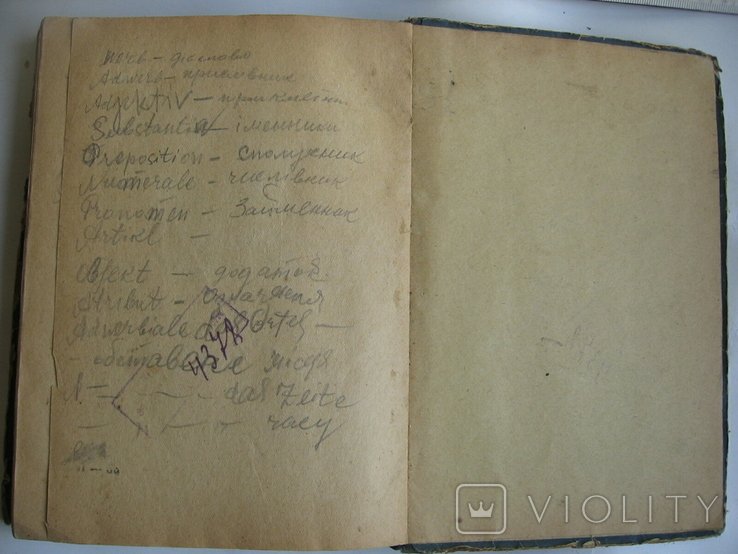 Verb – дієслово
Adverb – прислівник
Adjektiv – прикметн.
Substantiv – іменники
Preposition – сполучник
Numerale – числівник
Pronomen – Займенник
Artikel –
Objekt – додаток
Atribut – Означення
Adverbiale des Ortes –
– обставина місця
4378
A – – – – das Zeite
– – – – часу
VIOLITY